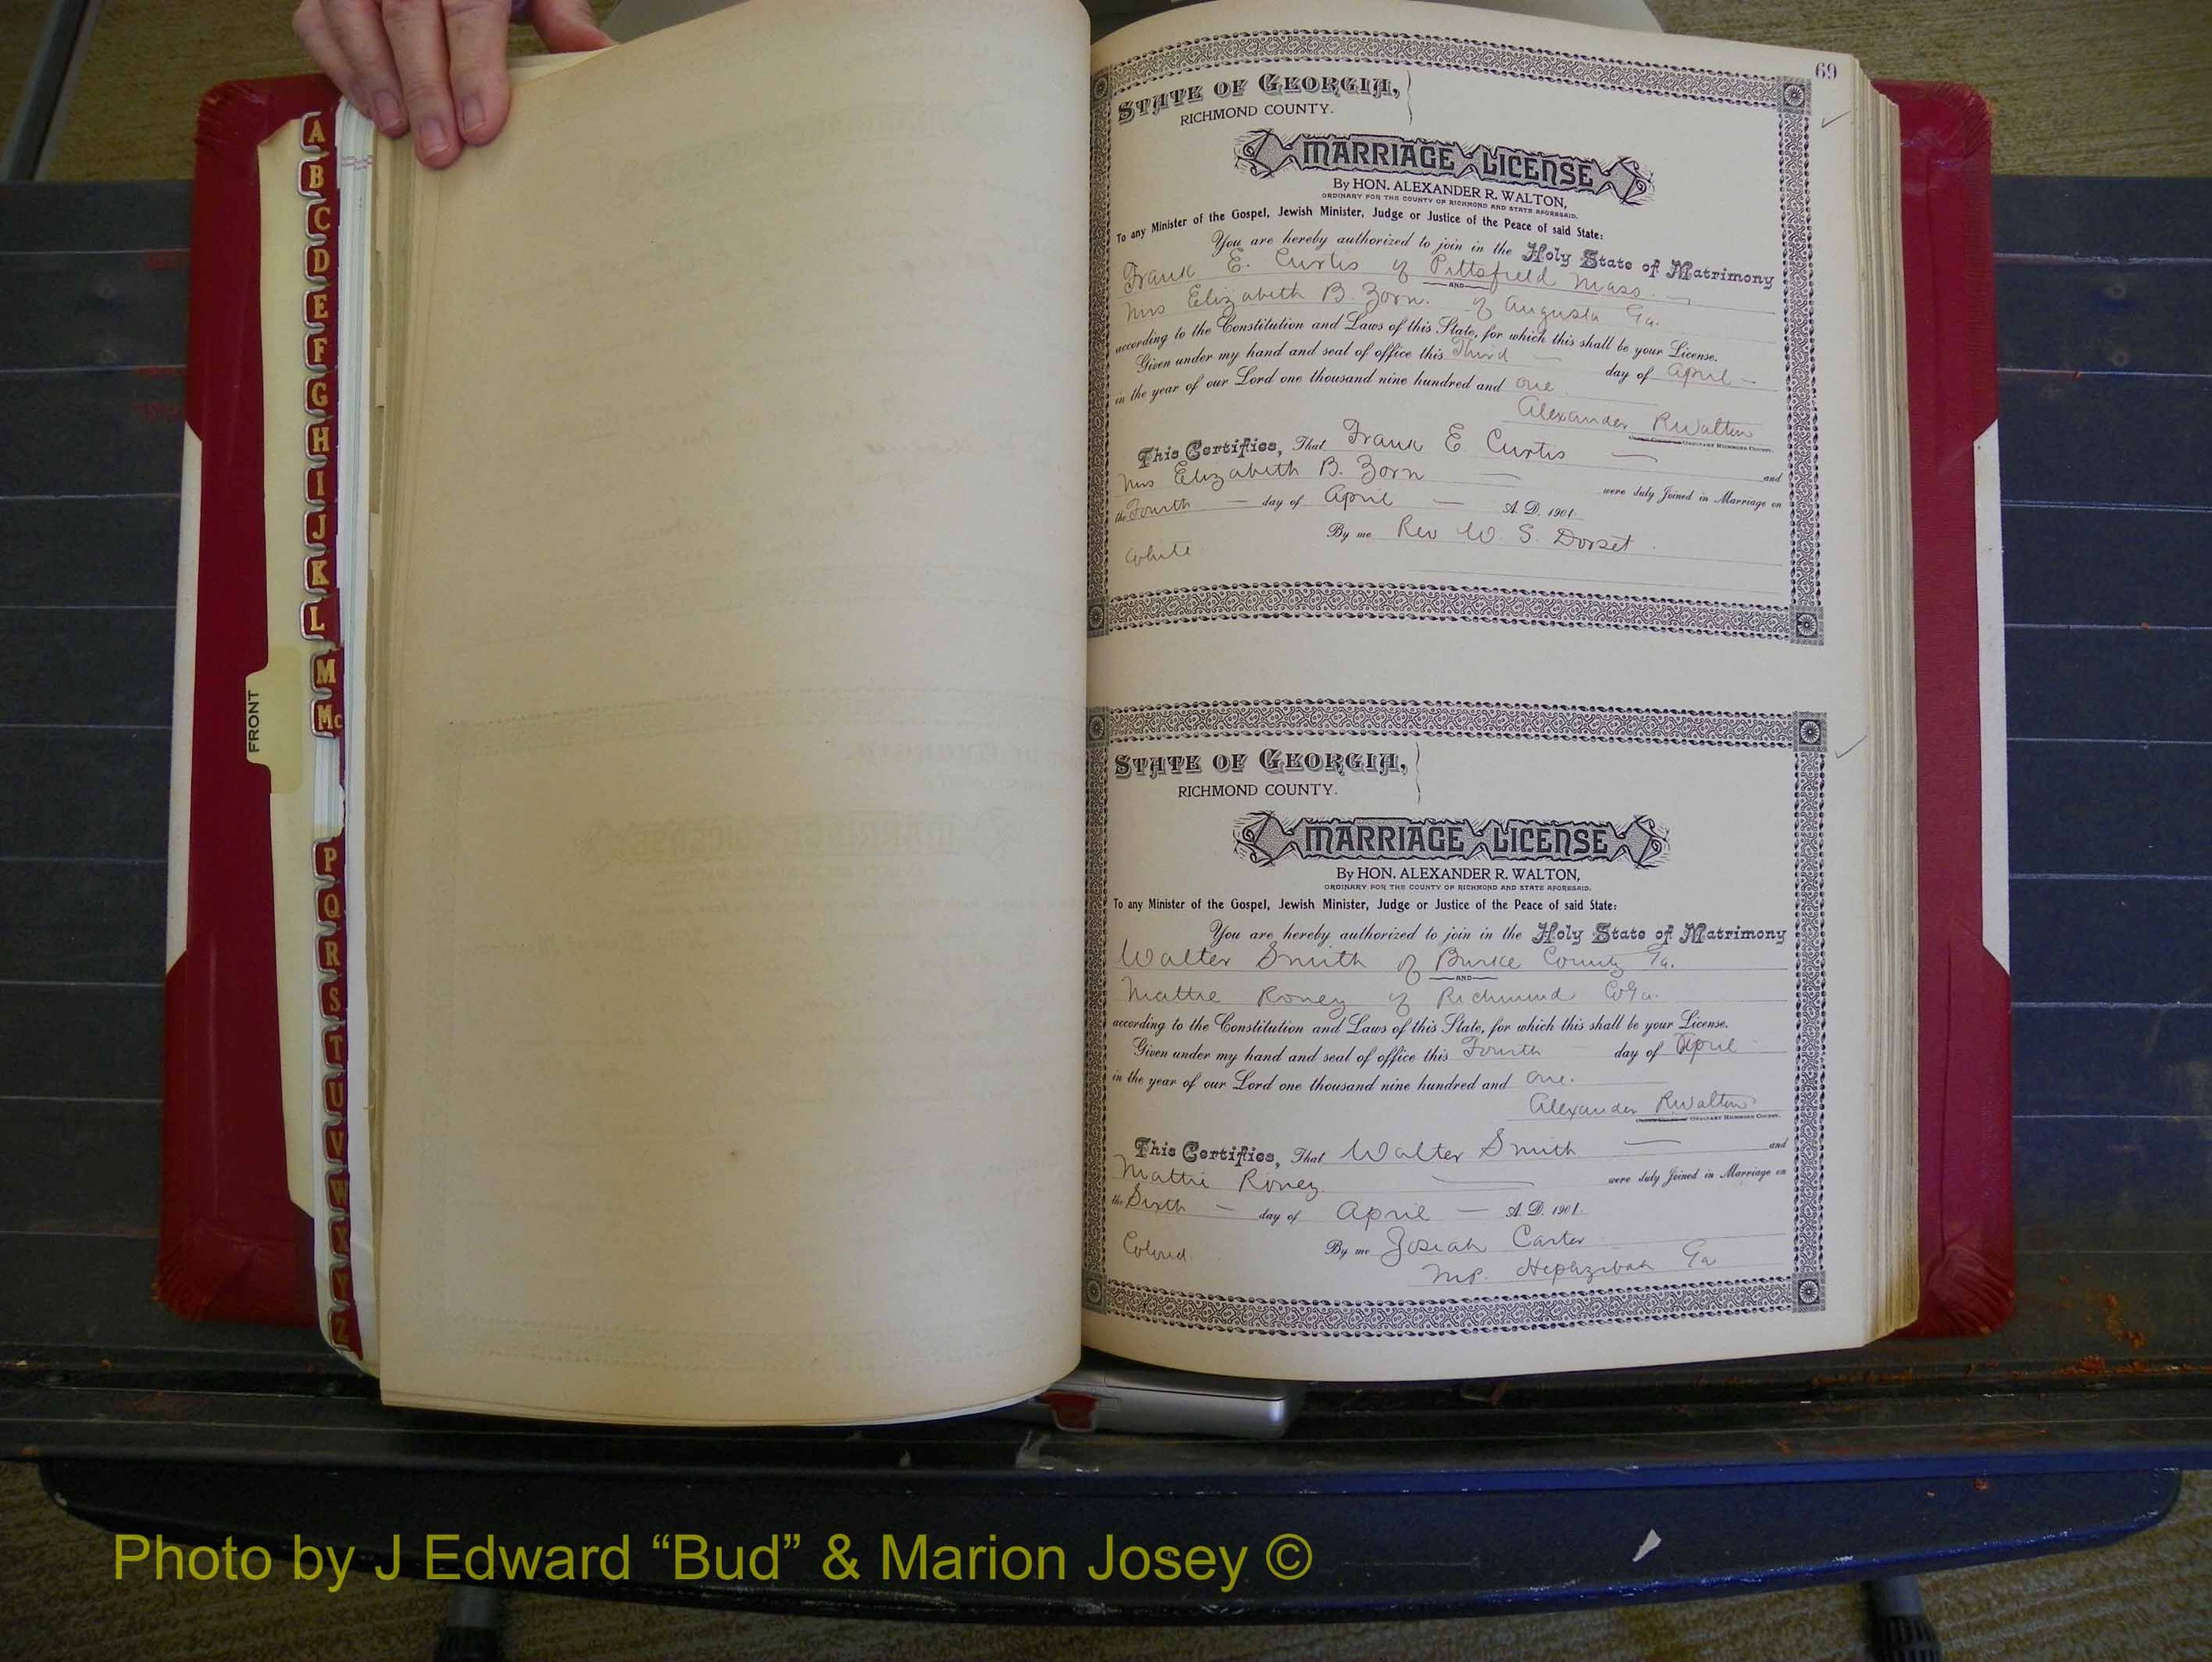 A
B
C
D
E
F
G
H
I
J
K
L
M
Mc
P
Q
R
S
T
U
V
W
X
Y
Z
FRONT
69
STATE OF GEORGIA,
RICHMOND COUNTY.
MARRIAGE LICENSE
By HON. ALEXANDER R. WALTON,
ORDINARY FOR THE COUNTY OF RICHMOND AND STATE AFORESAID.
To any Minister of the Gospel, Jewish Minister, Judge or Justice of the Peace of said State:
You are hereby authorized to join in the Holy State of Matrimony
Frank E. Curtis of Pittsfield Mass.
AND
Mrs Elizabeth B. Zorn. of Augusta Ga.
according to the Constitution and Laws of this State, for which this shall be your License.
Given under my hand and seal of office this Third day of April
in the year of our Lord one thousand nine hundred and one
Alexander R Walton
ORDINARY RICHMOND COUNTY.
This Certifies, That Frank E Curtis and
Mrs Elizabeth B. Zorn were duly Joined in Marriage on
the Fourth day of April A. D. 1901
By me Rev W. S. Dorset
White
STATE OF GEORGIA,
RICHMOND COUNTY.
MARRIAGE LICENSE
By HON. ALEXANDER R. WALTON,
ORDINARY FOR THE COUNTY OF RICHMOND AND STATE AFORESAID.
To any Minister of the Gospel, Jewish Minister, Judge or Justice of the Peace of said State:
You are hereby authorized to join in the Holy State of Matrimony
Walter Smith of Burke County Ga.
AND
Mattie Roney of Richmond Co Ga.
according to the Constitution and Laws of this State, for which this shall be your License.
Given under my hand and seal of office this Fourth day of April
in the year of our Lord one thousand nine hundred and one.
Alexander R Walton
ORDINARY RICHMOND COUNTY.
This Certifies, That Walter Smith and
Mattie Roney were duly Joined in Marriage on
the Sixth day of April A. D. 1901.
Colored By me Josiah Carter
M.P. Hephzibah Ga
Photo by J Edward “Bud” & Marion Josey ©